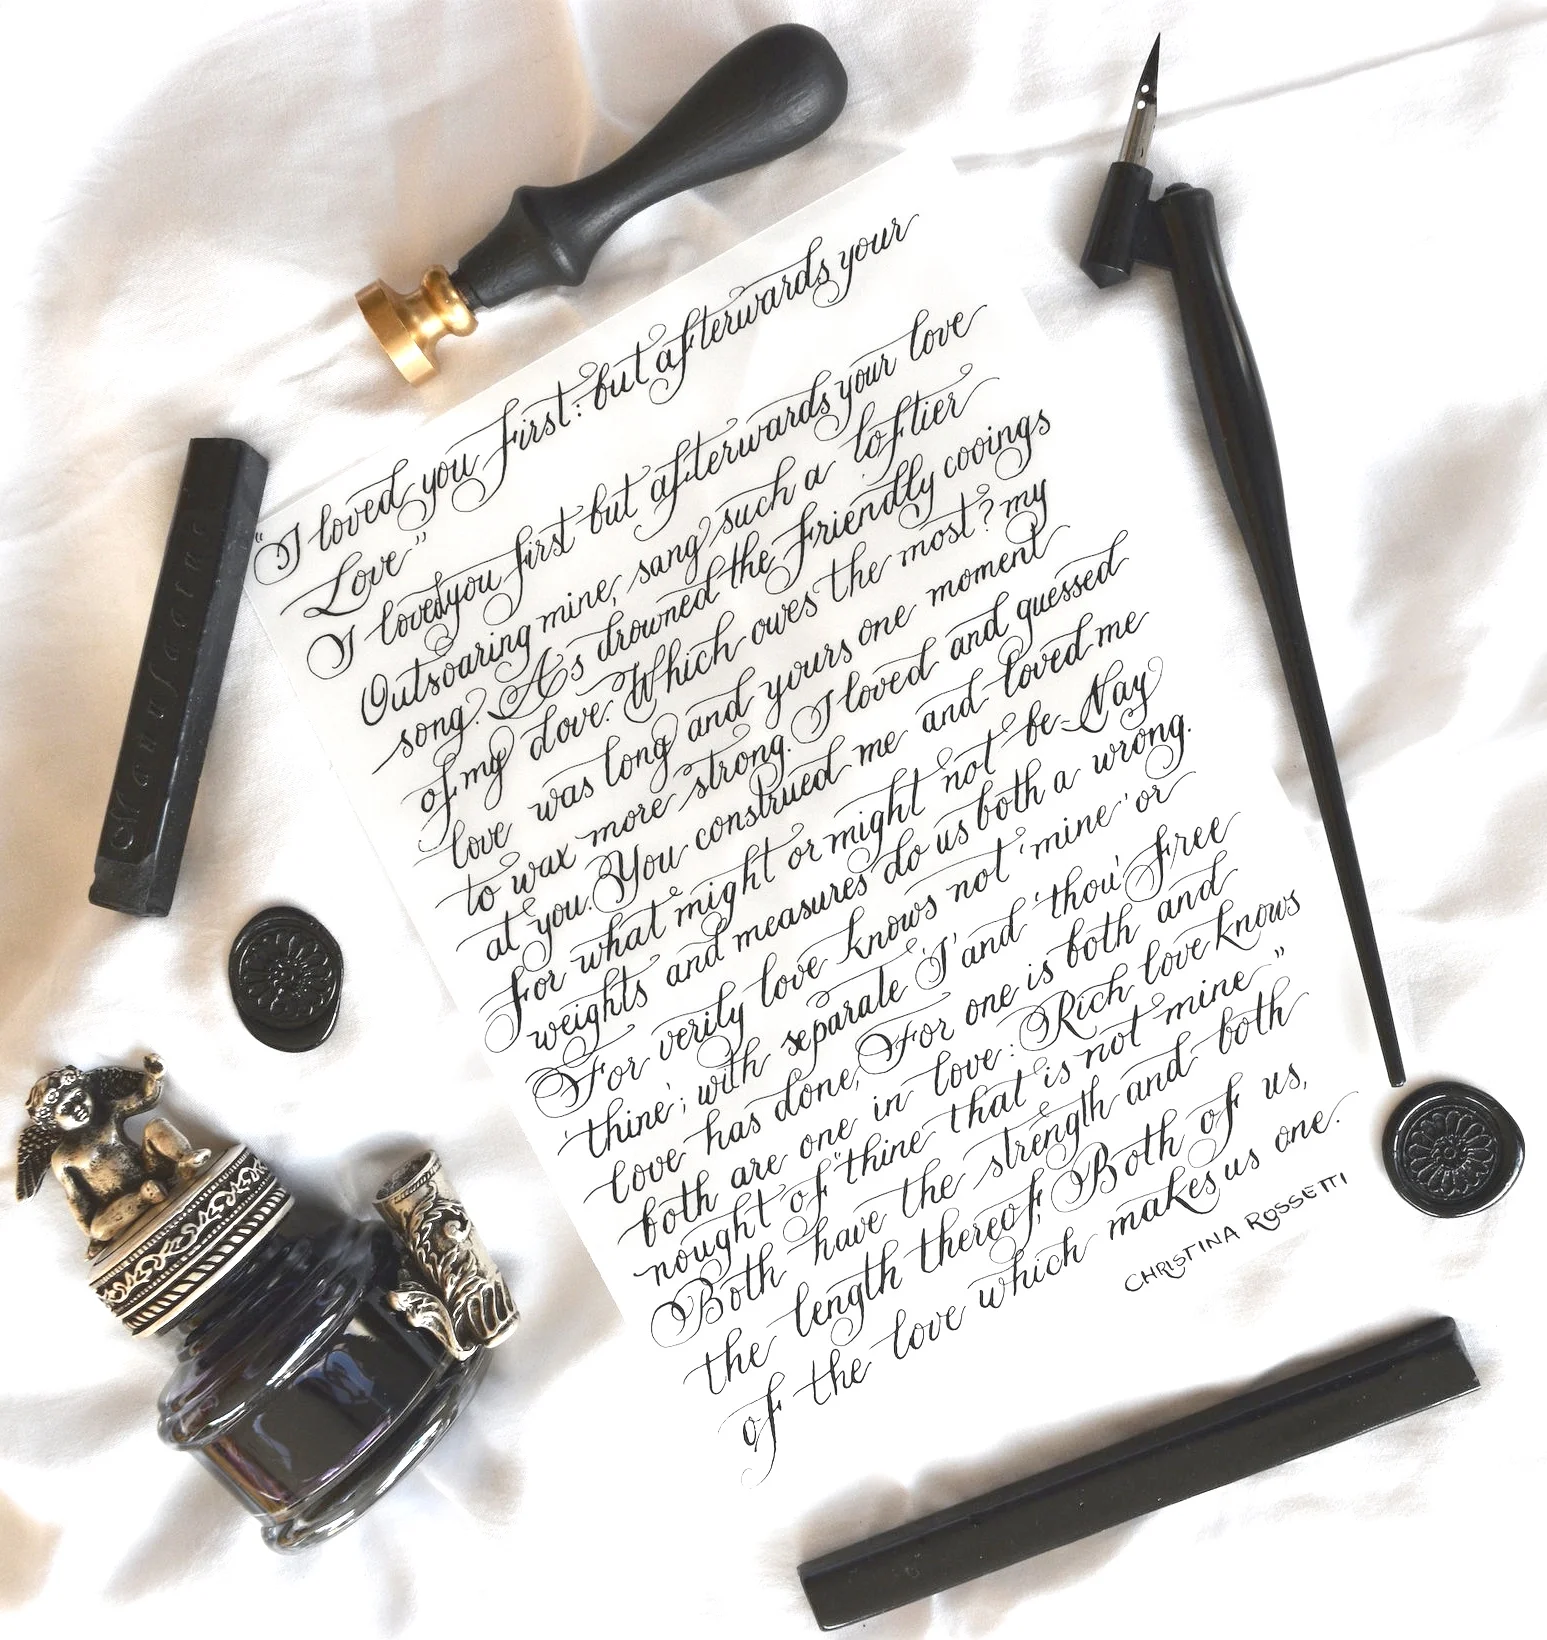 "I loved you first: but afterwards your
Love"
I loved you first but afterwards your love
Outsoaring mine, sang such a loftier
song. As drowned the friendly cooings
of my dove. Which owes the most? my
love was long and yours one moment
to wax more strong. I loved and guessed
at you. You construed me and loved me
for what might or might not be- Nay
weights and measures do us both a wrong.
For verily love knows not 'mine' or
'thine'; with separate 'I' and 'thou' free
love has done, For one is both and
both are one in love: Rich love knows
nought of "thine that is not mine"
Both have the strength and both
the length thereof, Both of us,
of the love which makes us one.
CHRISTINA ROSSETTI
Manufactus